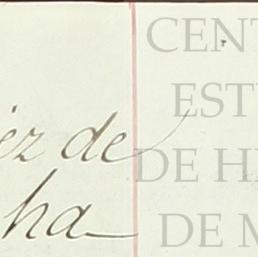 ez de
ha
CENT
EST
DE HI
DE M